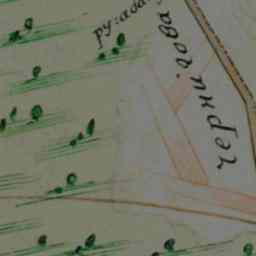 ру:ада
чернигова